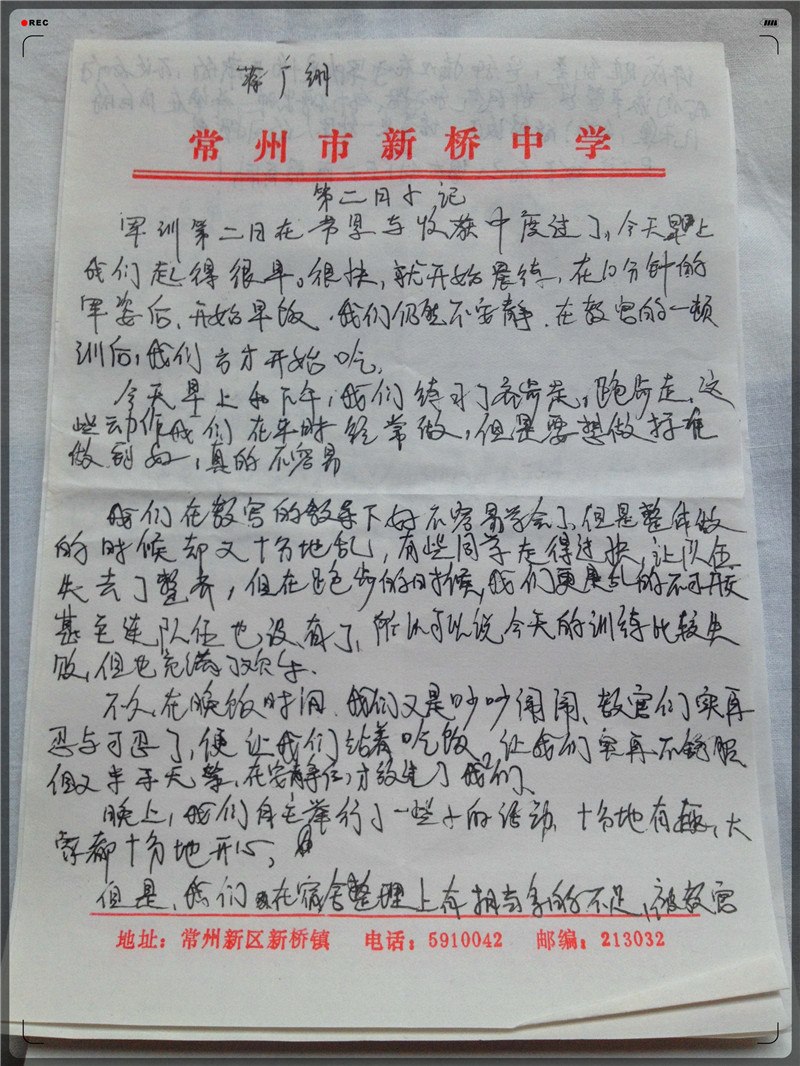 REC
常州市新桥中学
第二日小记
军训第二日在常思与收获中度过了,今天早上
我们起得很早。很快,就开始晨练,在10分钟的
军姿后,开始早饭.我们仍然不安静.在教官的一顿
训后,我们方才开始吃。
今天早上和下午,我们练习了齐步走,跑步走,这
些动作我们在平时经常做,但是要想做标准
做到好,真的不容易
我们在教官的教导下好不容易学会了,但是整体做
的时候却又十分地乱,有些同学走得过快,让队伍
失去了整齐,但在跑步的时候,我们更是乱的不可开交
甚至连队伍也没有了,所以可以说今天的训练比较失
败,但也充满了欢乐.
不久,在晚饭时间.我们又是吵吵闹闹、教官们实再
忍与可忍了,便让我们站着吃饭.让我们实再不舒服
但又束手无策,在安静后,才放过了我们、
晚上,我们自主举行了一些小的活动.十分地有趣,大
家都十分地开心,
但是,我们在宿舍整理上有相当多的不足,被教官
地址:常州新区新桥镇 电话:5910042 邮编:213032